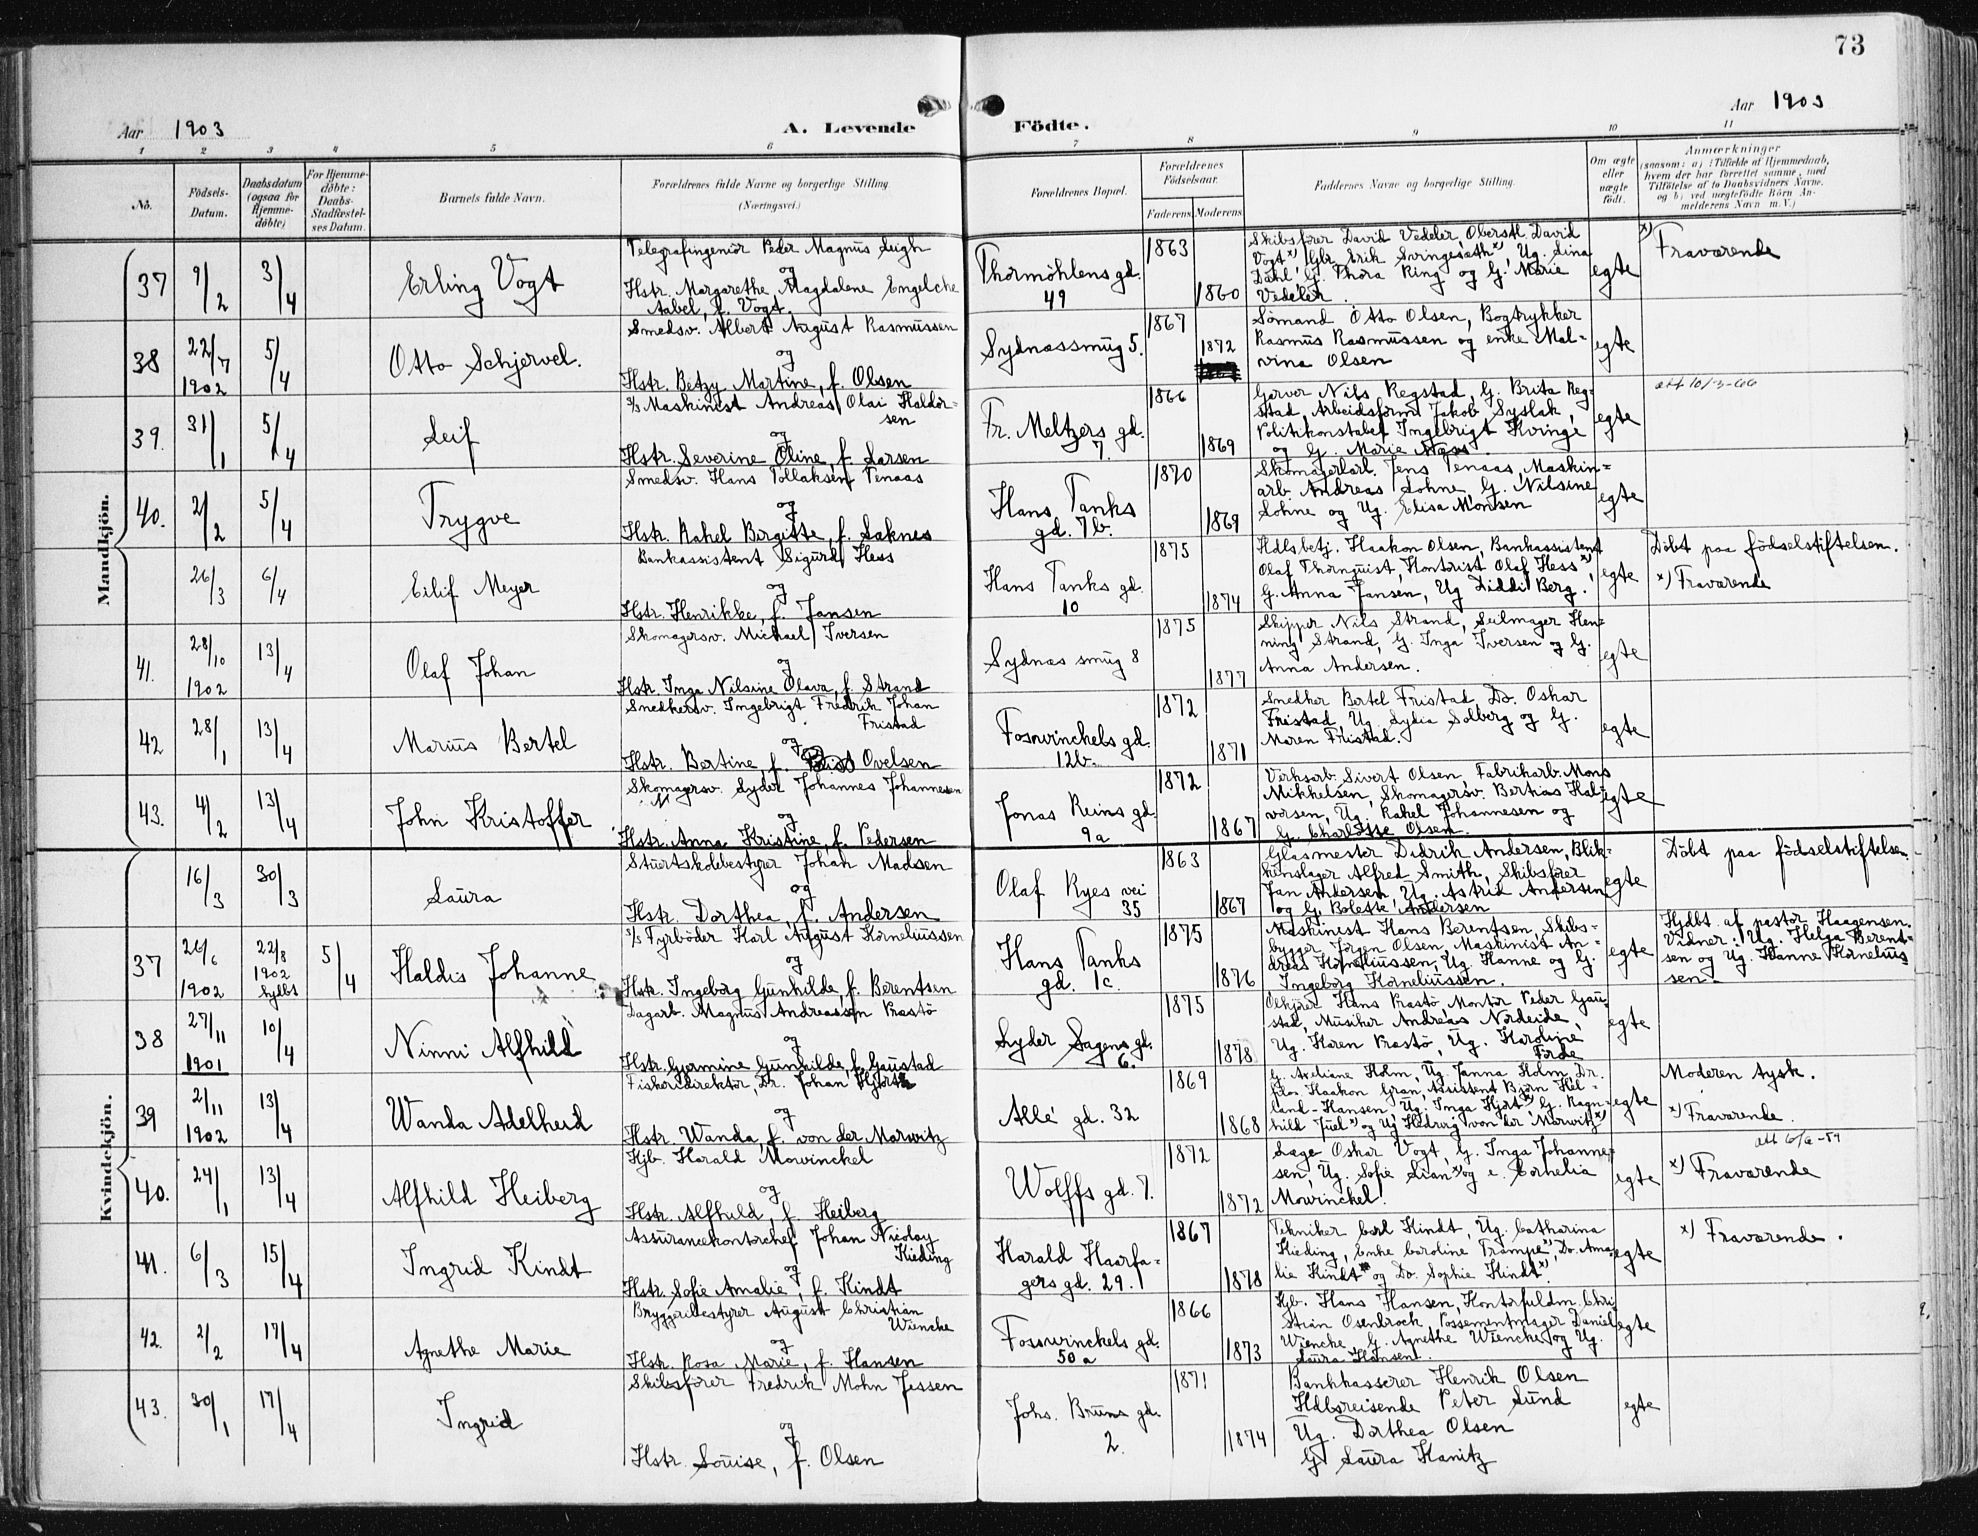 73
Aar 1903
A. Levende Födte.
Aar 1903
1 2 3 4 5 6 7 8 9 10 11
No.
Födsels-Datum.
Daabsdatum (ogsaa for Hjemme-döbte)
For Hjemme-döbte: Daabs-Stadfæstel-ses Datum.
Barnets fulde Navn.
Forældrenes fulde Navne og borgerlige Stilling. (Næringsvei.)
Forældrenes Bopæl.
Forældrenes Födselsaar.
Faderens. Moderens.
Faddernes Navne og borgerlige Stilling.
Om ægte eller uægte födt.
Anmærkninger
(saasom: a) i Tilfælde af Hjemmedaab, hvem der har forrettet samme, med Tilföielse af to Daabsvidners Navne, og b) ved uægtefödte Börn Anmelderens Navn m. V.)
Mandkjön.
37 9/2 3/4 Erling Vogt
Telegrafingeniör Peder Magnus Leigh
og
Hstr. Margarethe Magdalene Engelche
Aabel, f. Vogt.
Thormöhlens gd. 49
1863 1860
Skibsförer David Vedeler, Oberstl. David
Vogt x), Gbr. Erik Svingesæth x), Ug. Lina
Dahl, G. Thora Ring og G. Marie
Vedeler.
egte
x) Fraværende
38 22/7 1902 5/4 Otto Schjervel.
Smedsv. Albert August Rasmussen
og
Hstr. Betzy Martine, f. Olsen
Sydnæssmug 5.
1867 1872
Sömand Otto Olsen, Bogtrykker
Rasmus Rasmussen og enke Mal-
vina Olsen
egte
39. 31/1 5/4 Leif
s/s Maskinist Andreas Olai Haldor-
sen
og
Hstr. Severine Oline, f. Larsen
Fr. Meltzers gd. 7.
1866 1869
Garver Nils Regstad, G. Brita Reg-
stad, Arbeidsform. Jakob Syslak,
Politikonstabel Ingebrigt Kvinge
og G. Marie Næss.
egte
att 10/3-66
40. 2/2 5/4 Trygve
Smedsv. Hans Tollaksen Tenaas
og
Hstr. Rakel Birgitte, f. Saknes
Hans Tanks gd. 7b.
1870 1869
Skomagerarb. Jens Tenaas, Maskin-
arb. Andreas Lohne, G. Nilsine
Lohne og Ug. Elisa Monsen
egte
26/3 6/4 Eilif Meyer
Bankassistent Sigurd Hess
og
Hstr. Henrikke, f. Jansen
Hans Tanks gd. 10
1875 1874
Hdlsbetj. Haakon Olsen, Bankassistent
Olaf Thornquist, Kontorist Olaf Hess x),
G. Anna Jansen, Ug Diddi Berg.
egte
Döbt paa födselstiftelsen.
x) Fraværende
41. 28/10 1902 13/4 Olaf Johan
Skomagersv. Michael Iversen
og
Hstr. Inga Nilsine Olava, f. Strand
Sydnæs smug 8
1875 1877
Skipper Nils Strand, Seilmager Hen-
ning Strand, G. Inga Iversen og G.
Anna Andersen.
egte
42 28/1 13/4 Marius Bertel
Snedkersv. Ingebrigt Fredrik Johan
Fristad
og
Hstr. Bertine, f. Ovelsen
Foswinckels gd. 12b.
1872 1871
Snedker Bertel Fristad, Do. Oskar
Fristad, Ug. Lydia Solberg og G.
Maren Fristad.
egte
43. 4/2 13/4 John Kristoffer
Skomagersv. Lyder Johannes Johannesen
og
Hstr. Anna Kristine, f. Pedersen
Jonas Reins gd. 9a
1872 1867
Verksarb. Sivert Olsen, Fabrikarb. Mons
Mikkelsen, Skomagersv. Bertias Hal-
vorsen, Ug. Rakel Johannesen og
G. Charlotte Olsen
egte
Kvindekjön.
16/3 30/3 Laura
Stuertskolebestyrer Johan Madsen
og
Hstr. Dorthea, f. Andersen
Olaf Ryes vei 35
1863 1867
Glasmester Didrik Andersen, Blik-
kenslager Alfred Smith, Skibsförer
Jan Andersen, Ug. Astrid Andersen
og G. Bolette Andersen
egte
Döbt paa födselstiftelsen
37 26/6 1902 22/8 1902 hjdbt 5/4 Haldis Johanne
s/s Fyrböder Karl August Korneliussen
og
Hstr. Ingeborg Gunhilde, f. Berentsen
Hans Tanks gd. 1c.
1875 1876
Maskinist Hans Berentsen, Skibs-
bygger Jörgen Olsen, Maskinist An-
dreas Korneliussen, Ug. Hanne og G.
Ingeborg Korneliussen.
egte
Hjdbt. af pastor Haagensen.
Vidner: Ug. Helga Berent-
sen og Ug. Hanne Kornelius
sen.
38 27/11 1901 10/4 Ninni Alfhild
Dagarb. Magnus Andreassen Prastö
og
Hstr. Gjermine Gunhilde, f. Gaustad
Lyder Sagens gd. 6.
1875 1878
Ölkjörer Hans Prastö, Montör Peder Gau-
stad, Musiker Andreas Nordeide,
Ug. Karen Prastö, Ug. Karoline
Förde
egte
39 2/11 1902 13/4 Wanda Adelheid
Fiskeridirektör, Dr. Johan Hjort
og
Hstr. Wanda, f. von der Marwitz
Allé gd. 32
1869 1868
G. Axeliane Holm, Ug. Janna Holm, Dr.
filos. Haakon Gran, Assistent Björn Hel-
land-Hansen, Ug. Inga Hjort x), G. Ragn-
hild Juel x) og Ug Hedvig von der Marwitz x)
egte
Moderen tysk.
x) Fraværende.
40. 24/1 13/4 Alfhild Heiberg
Kjb. Harald Mowinckel
og
Hstr. Alfhild, f. Heiberg
Wolffs gd. 7.
1872 1872
Læge Oskar Vogt, G. Inga Johanne-
sen, Ug. Sofie Lian x) og e. Cornelia
Mowinckel.
egte
att 6/6-59
x) Fraværende
41. 6/3 15/4 Ingrid Kindt
Assurancekontorchef Johan Nicolay
Kieding
og
Hstr. Sofie Amalie, f. Kindt
Harald Haarfa-
gers gd. 29.
1867 1878
Tekniker Carl Kindt, Ug. Catharina
Kieding, Enke Caroline Trampe x), Do. Ama-
lie Kindt x) og Do. Sophie Kindt x).
egte
x) Fraværende.
42. 2/2 17/4 Agnethe Marie
Bryggeribestyrer August Christian
Wiencke
og
Hstr. Rosa Marie, f. Hansen
Fosswinckels gd. 50a
1866 1873
Kjb. Hans Hansen, Kontorfuldm. Chri-
stian Osenbrock, Possementmager Daniel
Wiencke, G. Agnethe Wiencke og Ug.
Laura Hansen.
egte
43. 30/1 17/4 Ingrid
Skibsförer Fredrik Mohn Jessen
og
Hstr. Louise, f. Olsen
Johs. Bruns gd. 2.
1871 1874
Bankkasserer Henrik Olsen
Hdlsreisende Peter Sund
Ug. Dorthea Olsen
G. Laura Kanitz
egte